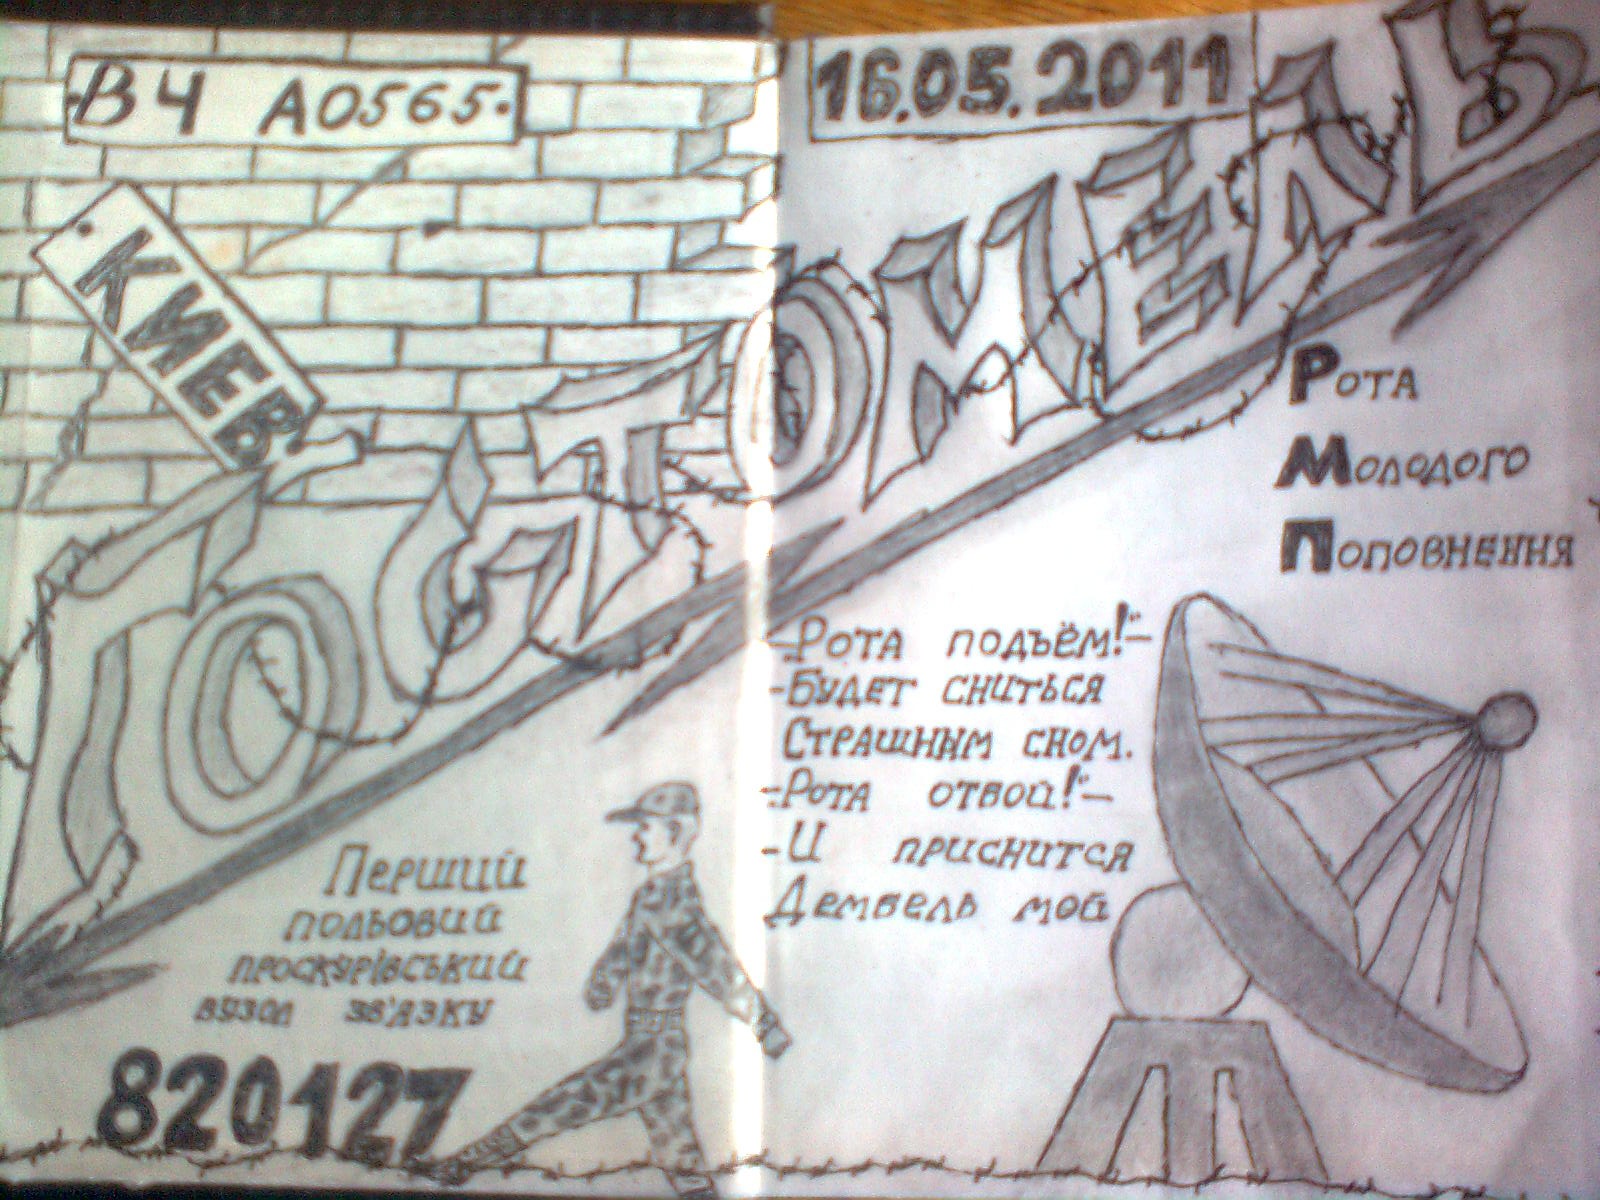 ВЧ А0565.
16.05.2011
КИЕВ
ГОСТОМЕЛЬ
Рота
Молодого
Поповнення
-Рота подъём!"-
-Будет сниться
Страшным сном.
-Рота отбой!"-
-И приснится
Дембель мой
Перший
польовий
проскурівський
вузол зв'язку
820127